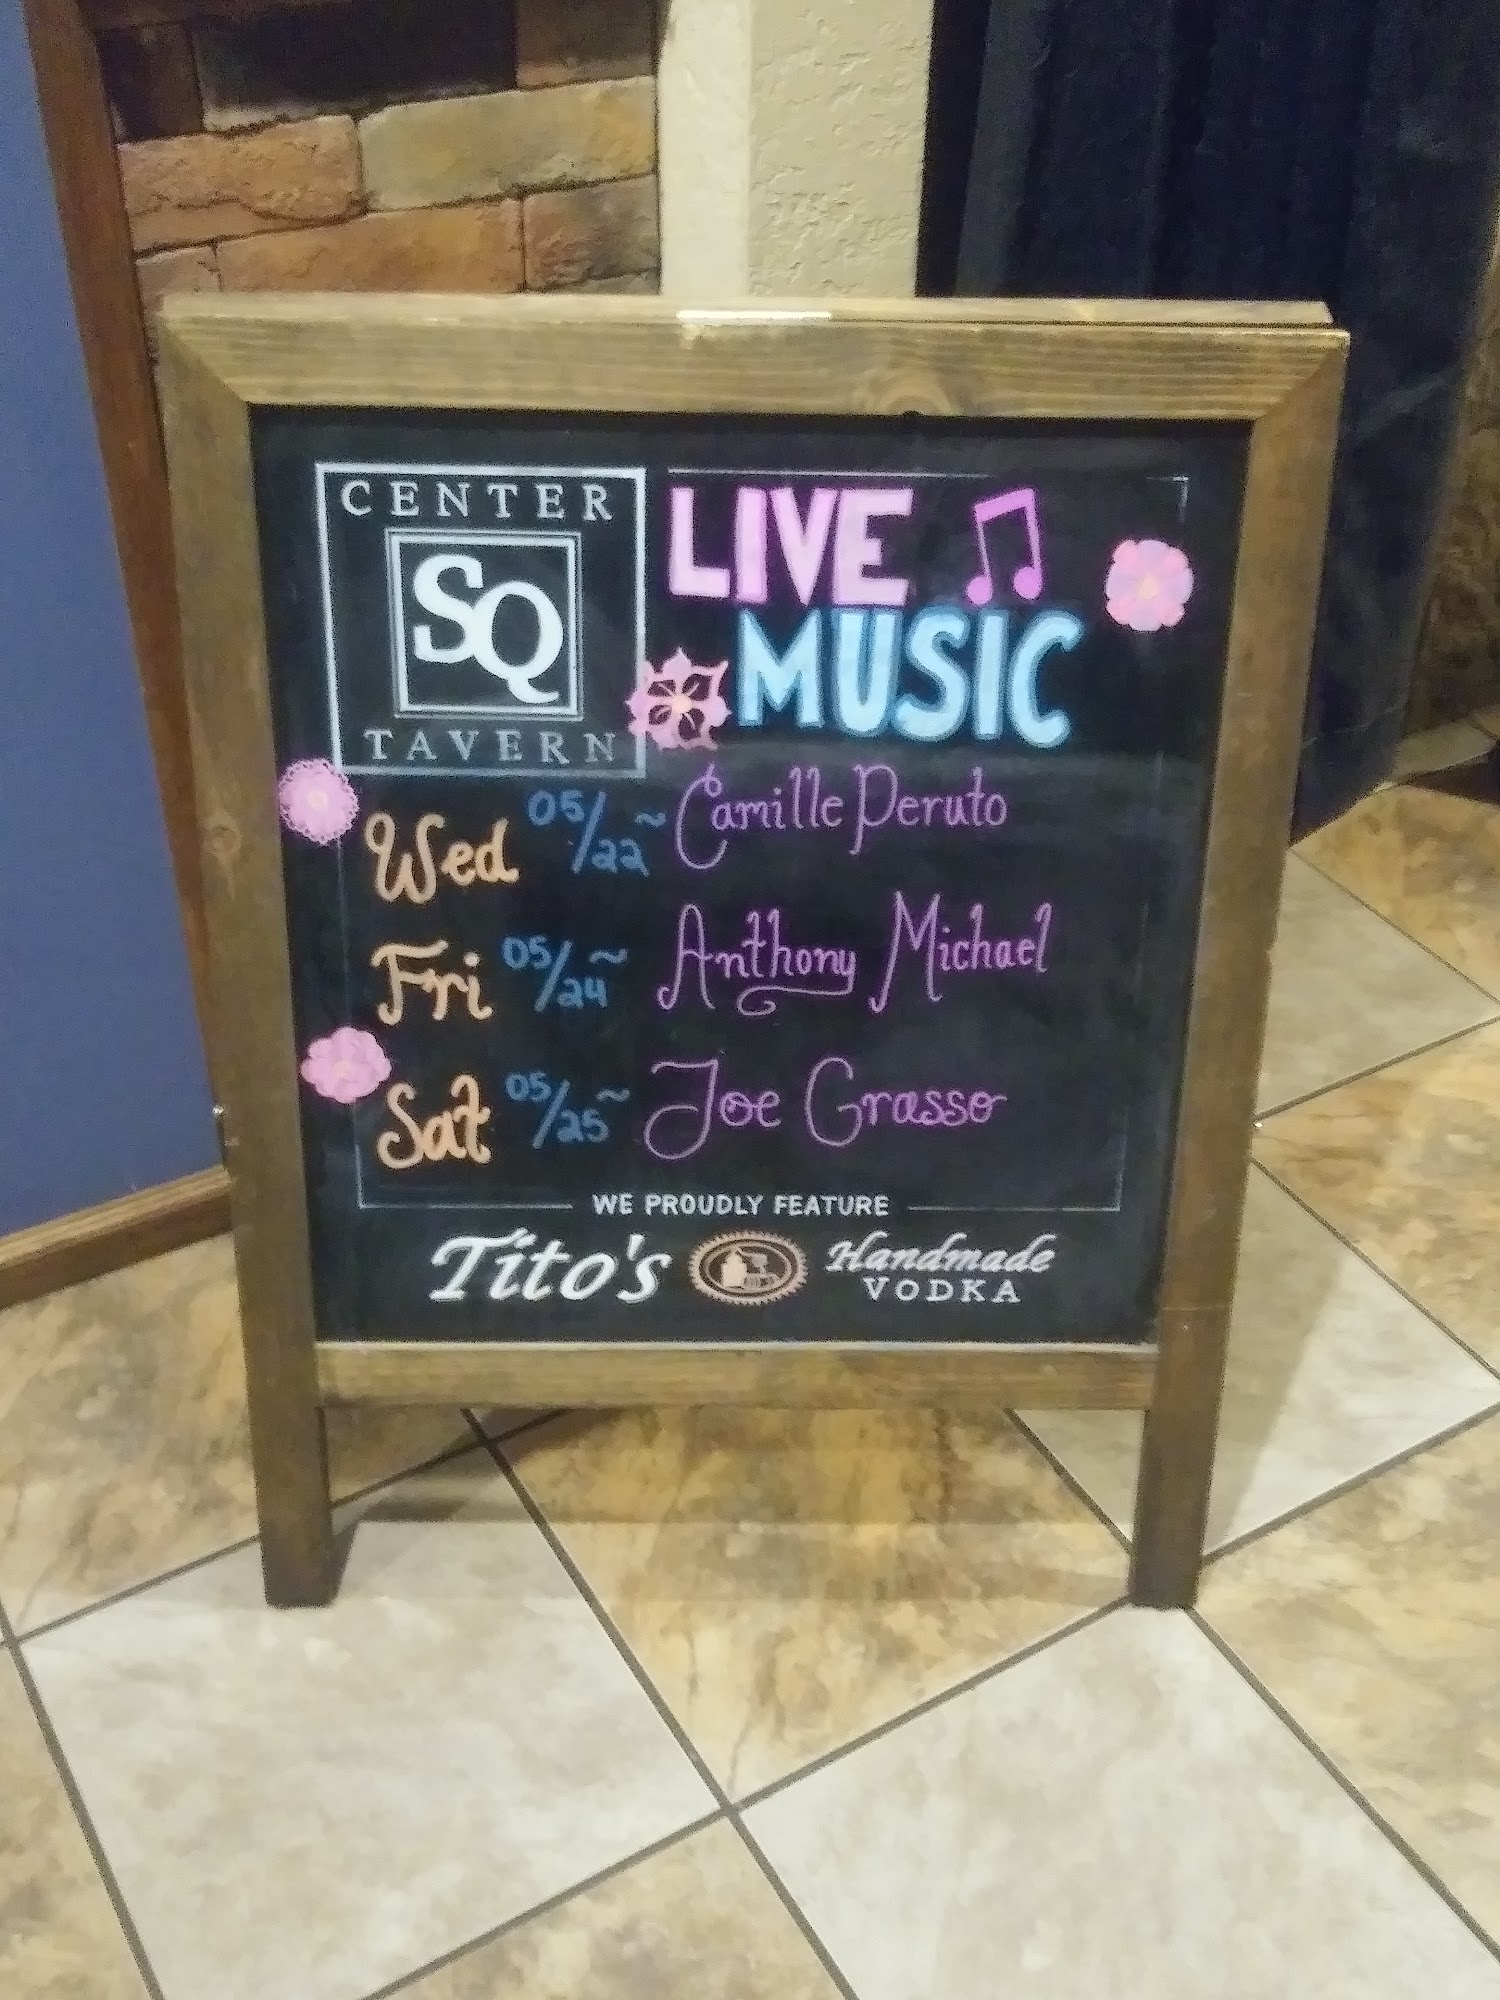 CENTER
SQ
TAVERN
LIVE
MUSIC
Wed 05/22 ~ Camille Peruto
Fri 05/24 ~ Anthony Michael
Sat 05/25 ~ Joe Grasso
WE PROUDLY FEATURE
Tito's Handmade
VODKA